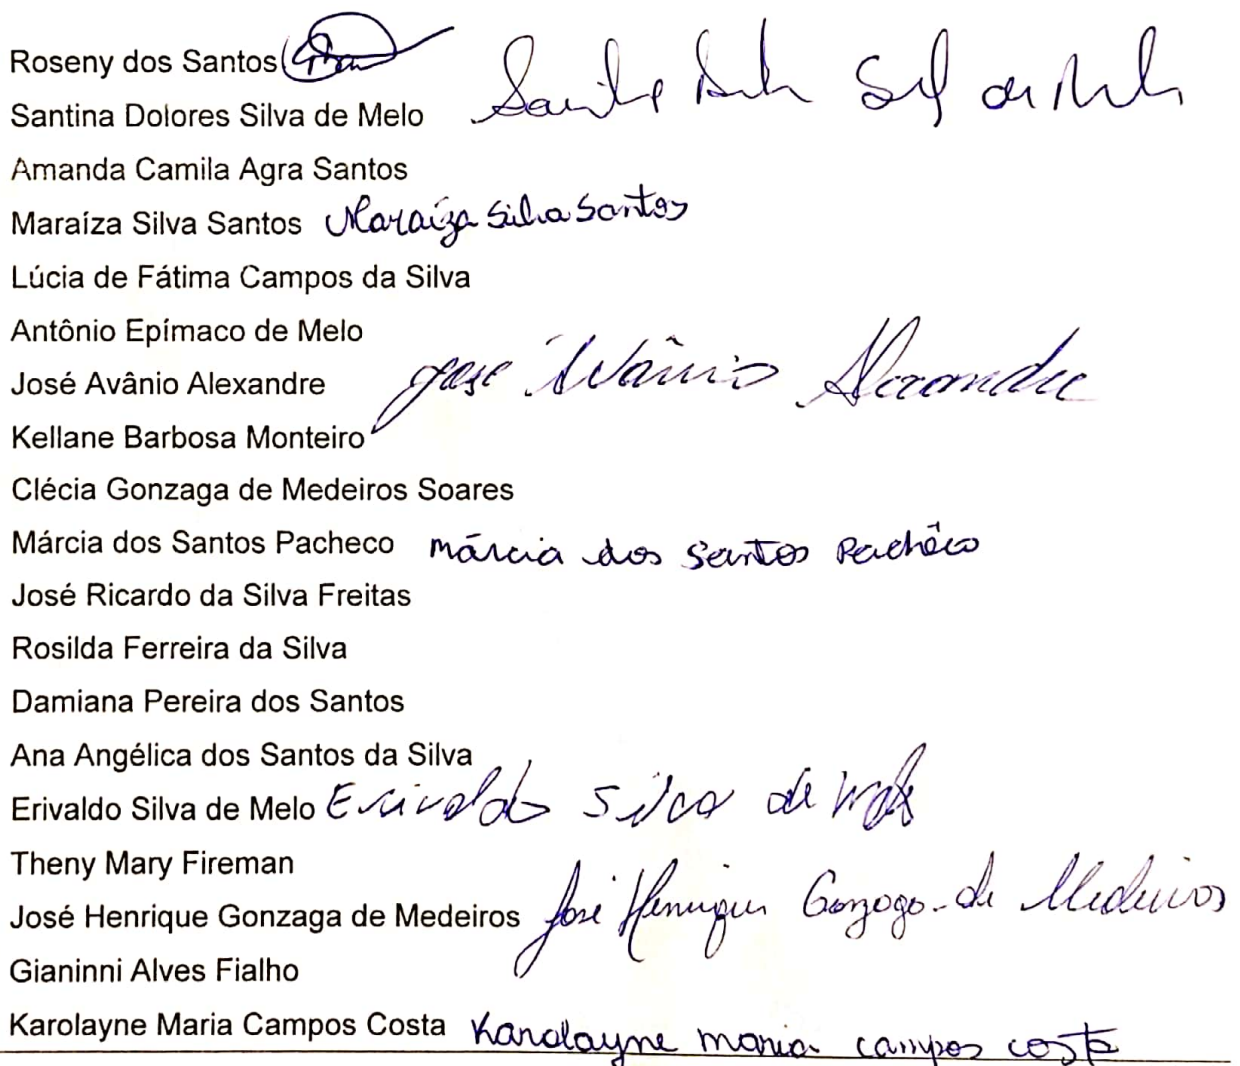 Roseny dos Santos
Santina Dolores Silva de Melo
Amanda Camila Agra Santos
Maraíza Silva Santos Maraíza Silva Santos
Lúcia de Fátima Campos da Silva
Antônio Epímaco de Melo
José Avânio Alexandre José Avânio Alexandre
Kellane Barbosa Monteiro
Clécia Gonzaga de Medeiros Soares
Márcia dos Santos Pacheco Márcia dos Santos Pachêco
José Ricardo da Silva Freitas
Rosilda Ferreira da Silva
Damiana Pereira dos Santos
Ana Angélica dos Santos da Silva
Erivaldo Silva de Melo Erivaldo Silva de Melo
Theny Mary Fireman
José Henrique Gonzaga de Medeiros José Henrique Gonzaga de Medeiros
Gianinni Alves Fialho
Karolayne Maria Campos Costa Karolayne Maria Campos Costa